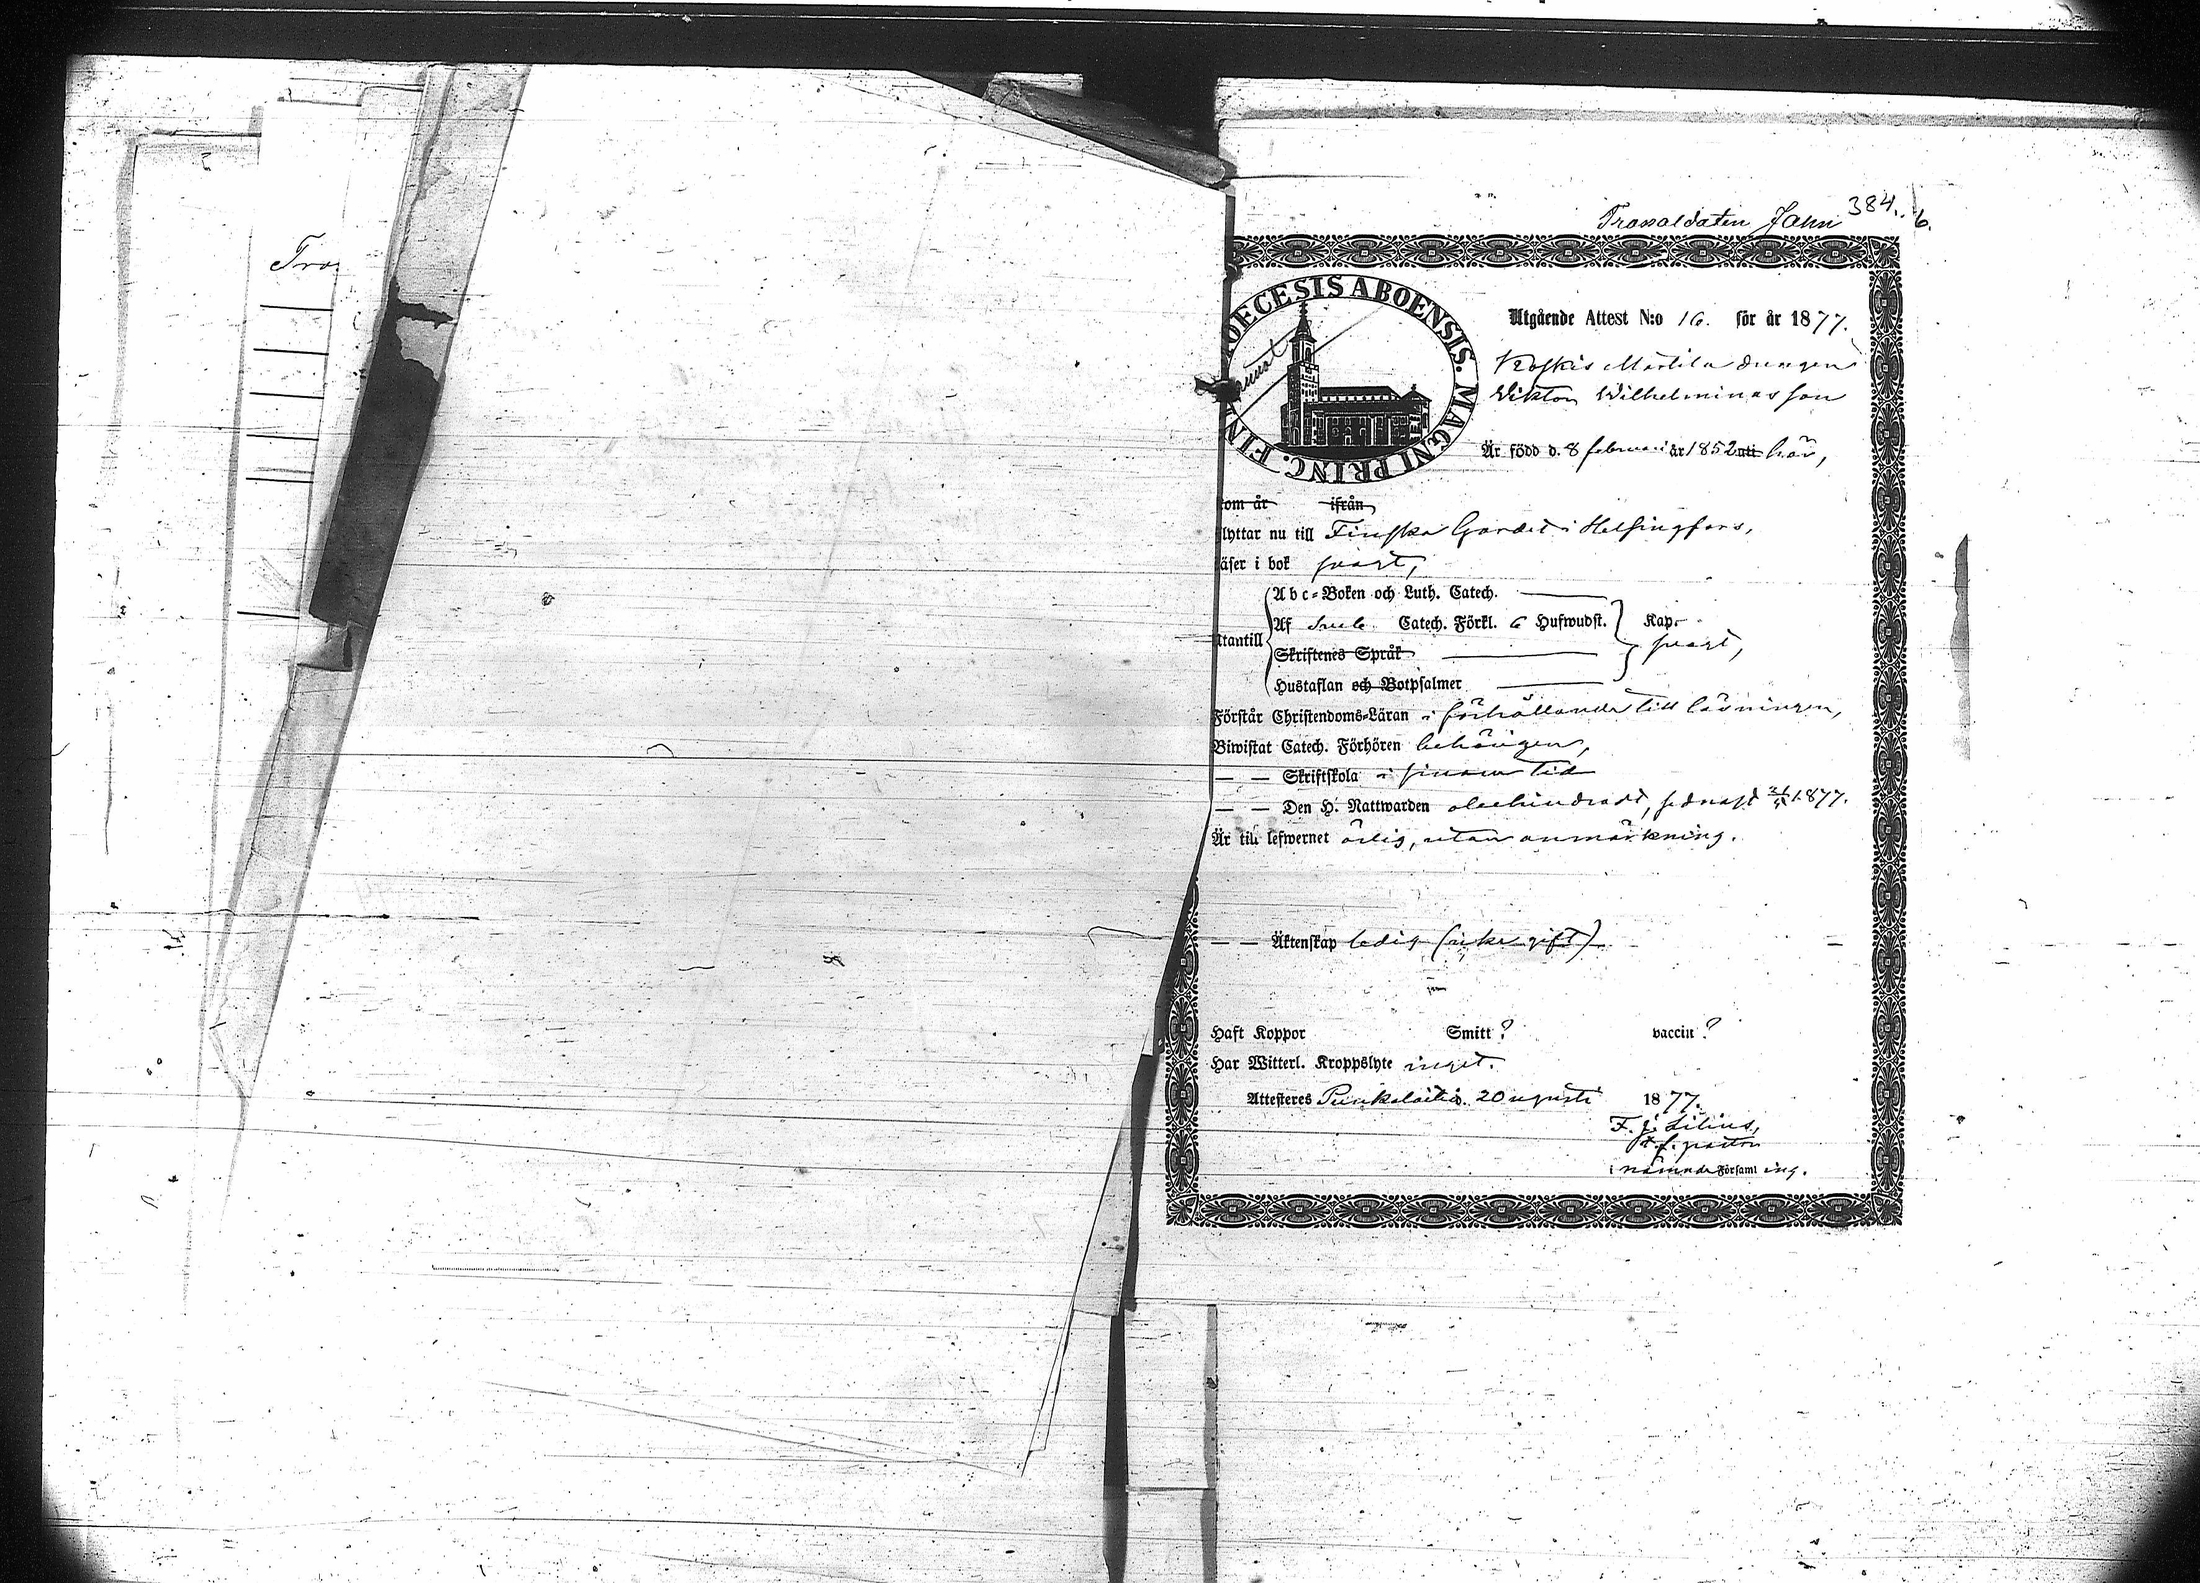 Tro
384. 6.
Trosoldaten Jahn
DIOECESIS ABOENSIS. MAGNI PRINC. FIN
Utgående Attest N:o 16. för år 1877.
Koskis Mörtila drängen
Wiktor Wilhelminasson
Är född d. 8 februari år 1852 uti här,
kom år ifrån
flyttar nu till Finska Gardet i Helsingfors,
läser i bok svagt,
Abc-Boken och Luth. Catech.
Af Catech. Förkl. 6 Hufwudst. Kap.
utantill svagt,
Skriftenes Språk
Hustaflan och Botpsalmer
Förstår Christendoms-Läran i förhållande till läsningen,
Biwistat Catech. Förhören behörigen,
— — Skriftskola i sinom tid
— — Den H. Nattwarden obehindradt, sednast 1877.
Är till lefwernet ärlig, utan anmärkning.
— — Äktenskap ledig (icke gift)
Haft Koppor Smitt? vaccin?
Har Witterl. Kroppslyte inget.
Attesteres Punkalaitio d. 20 augusti 1877.
F. J. Lilius,
t. f. pastor
i nämnde Församling.